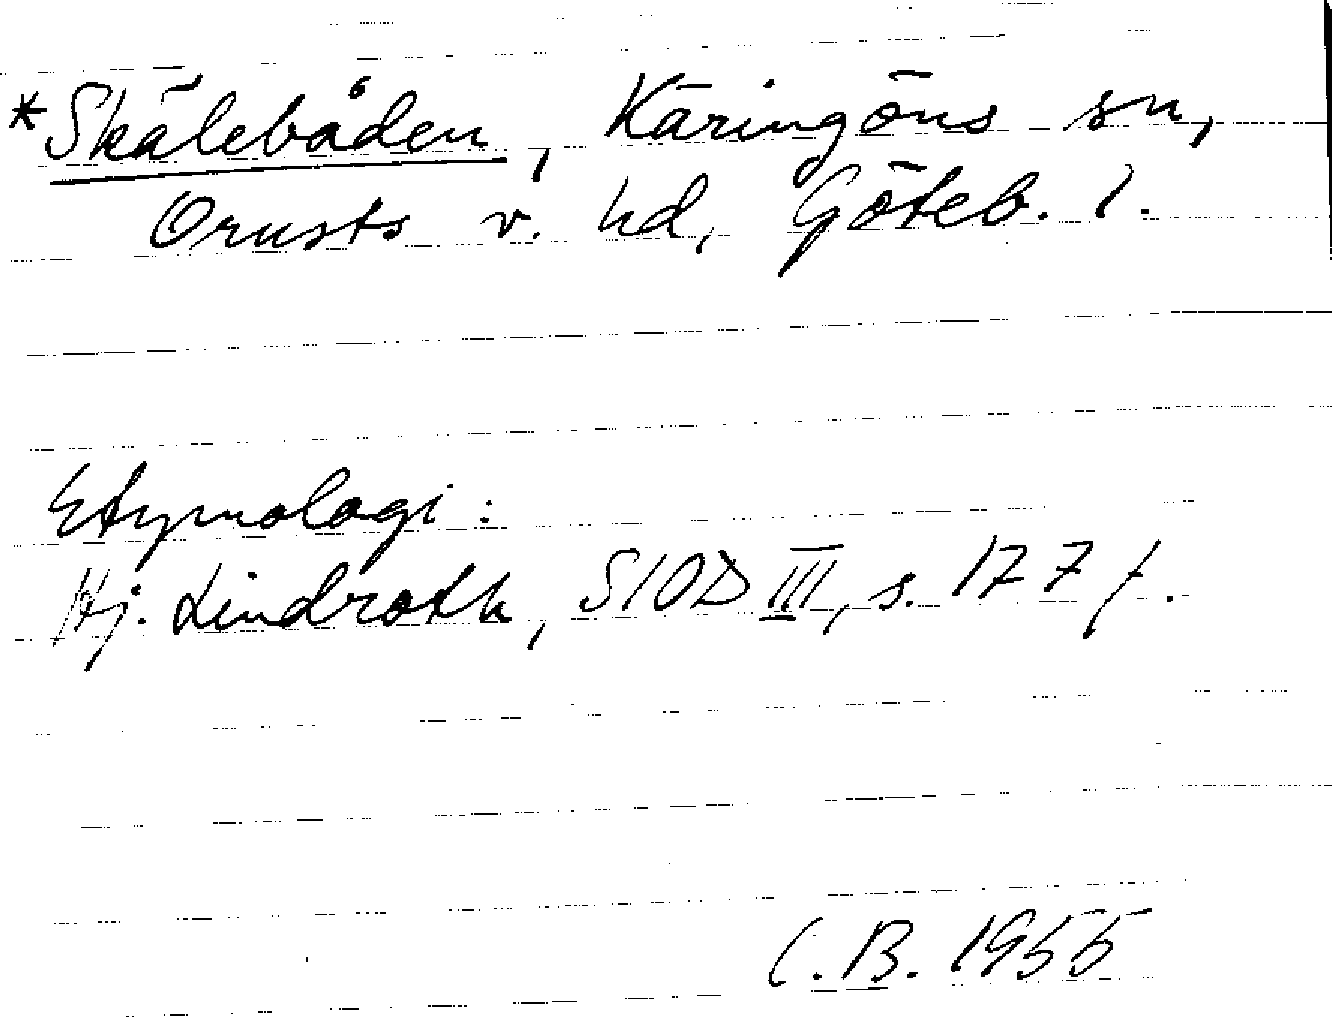 *Skälebåden, Käringöns sn,
Orusts v. hd, Göteb. l.
Etymologi:
Hj. Lindroth, SIOD III, s. 177 f.
C.B. 1955